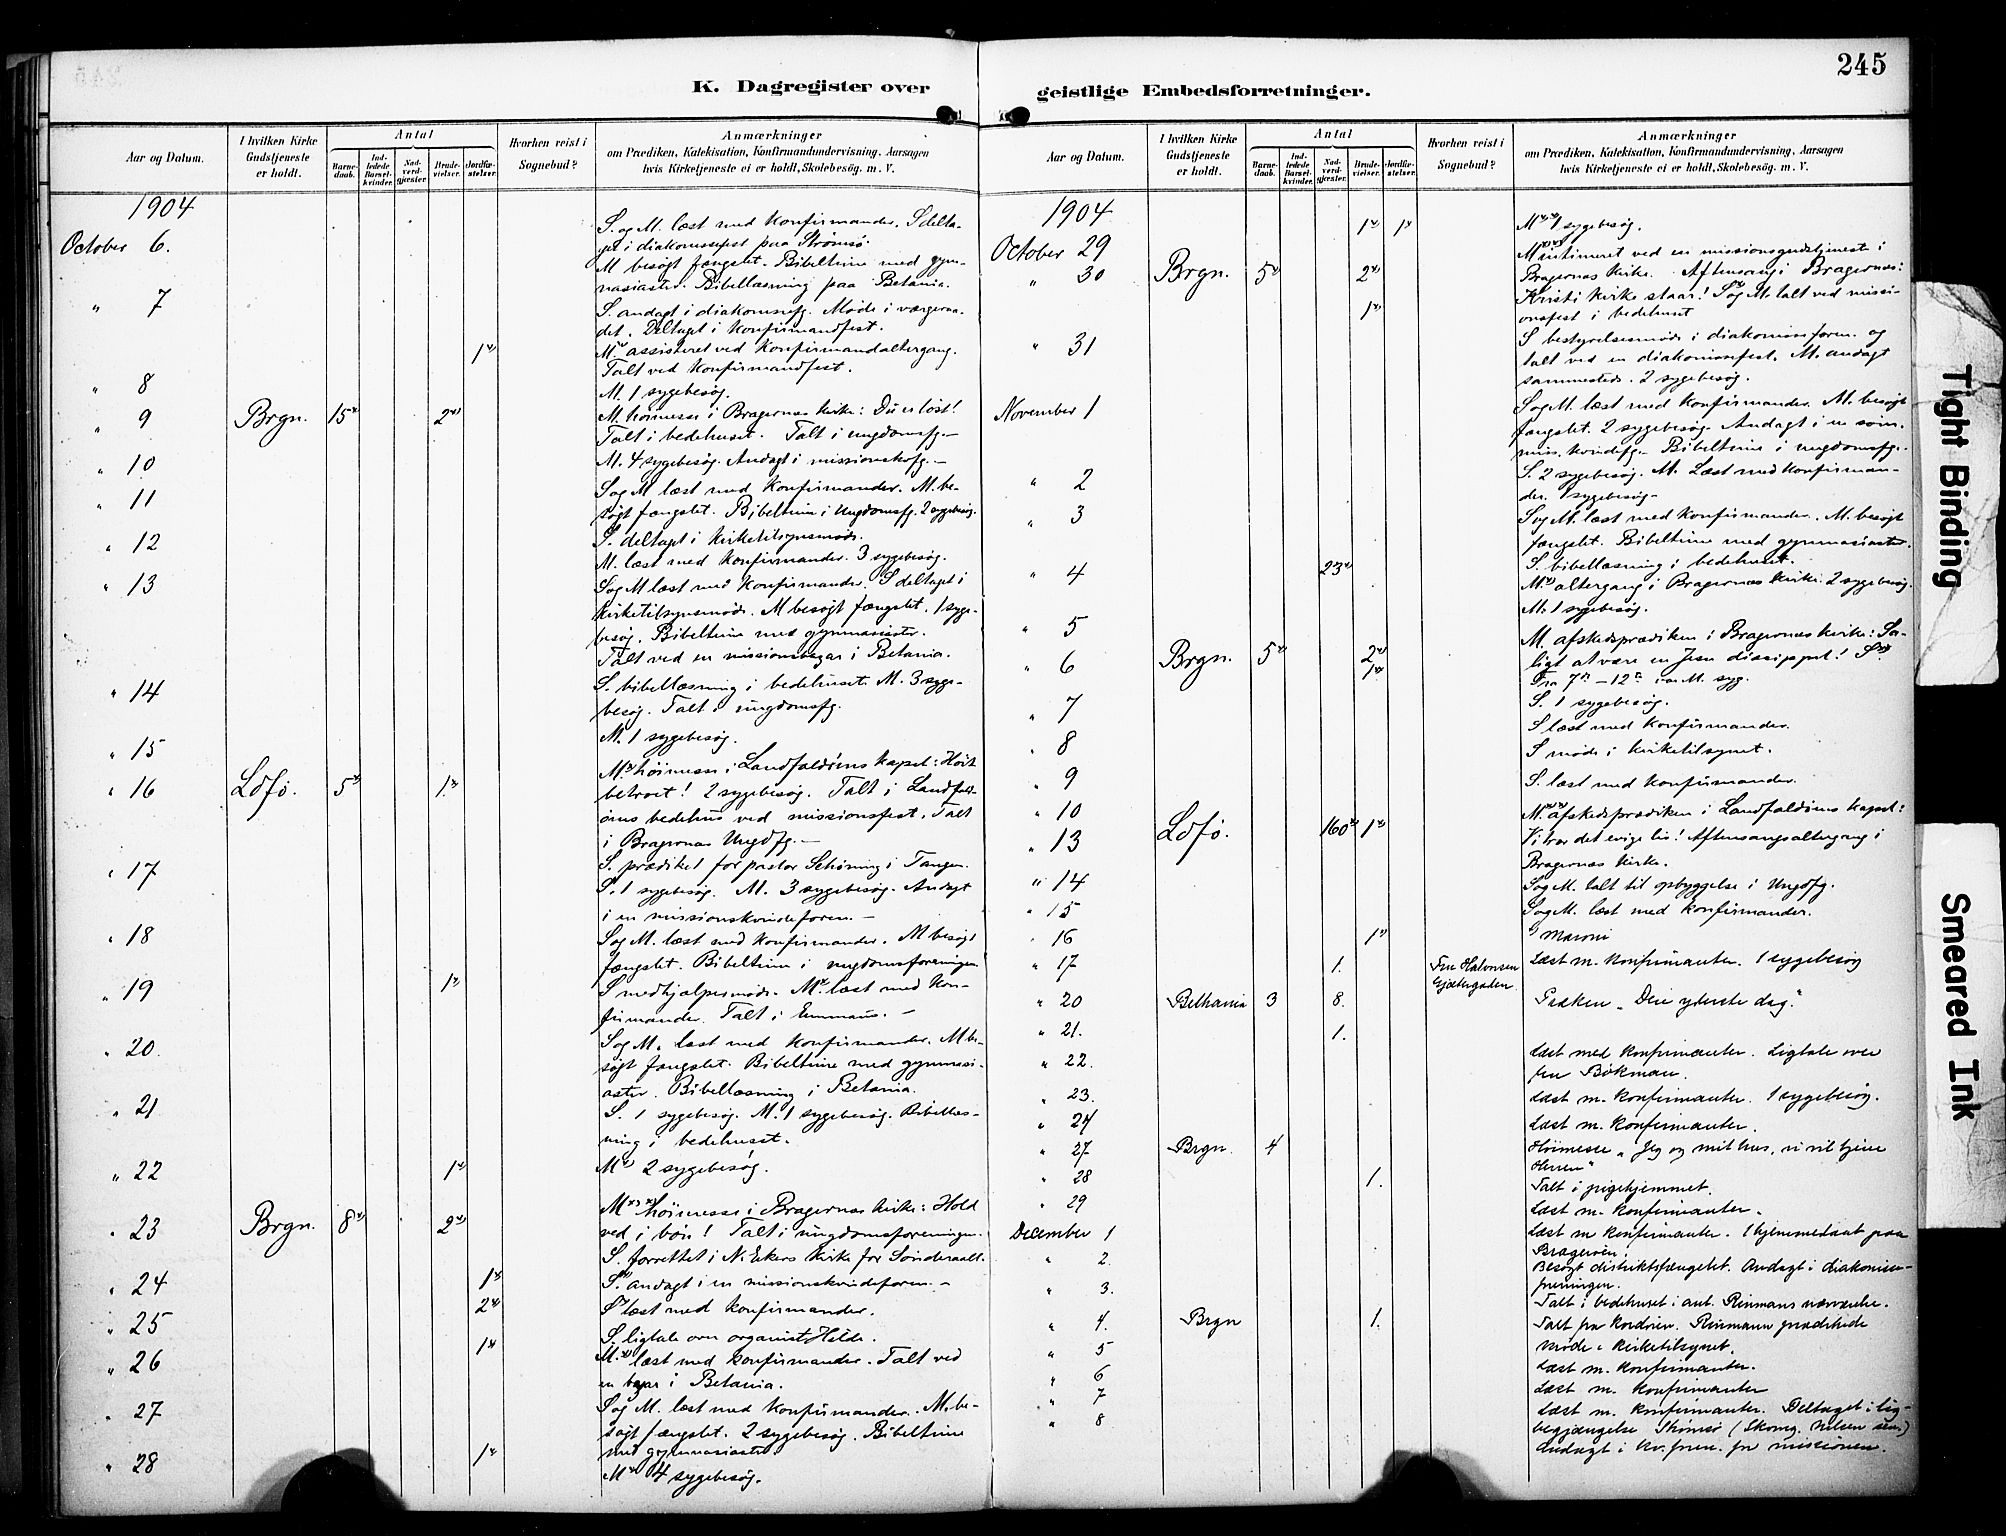 245
K. Dagregister over
geistlige Embedsforretninger.
Aar og Datum.
I hvilken Kirke Gudstjeneste er holdt.
Antal
Barnedaab.
Indledede Barselkvinder.
Nadverdgjester.
Brudevielser.
Jordfæstelser.
Hvorhen reist i Sognebud?
Anmærkninger
om Prædiken, Katekisation, Konfirmandundervisning, Aarsagen
hvis Kirketjeneste ei er holdt, Skolebesøg. m. V.
1904
October 6. S. og M. læst med Konfirmander. S delta-
get i diakonissefest paa Strømsø.
M besøgt fængslet. Bibeltime med gym-
nasiaster. Bibellæsning paa Betania.
" 7 S. andagt i diakonissefg. Møde i værgeraa-
det. Deltaget i Konfirmandfest.
1 M. assisteret ved Konfirmandaltergang.
Talt ved Konfirmandfest.
" 8 M. 1 sygebesøg.
" 9 Brgn. 15 2 M. høimesse i Bragernæs Kirke: Du er løst!
Talt i bedehuset. Talt i ungdomsfg.
" 10 M. 4 sygebesøg. Andagt i missionskofg.
" 11 S og M læst med Konfirmander. M. be-
søgt fængslet. Bibeltime i Ungdomsfg. 2 sygebesøg.
" 12 S. deltaget i Kirketilsynsmøde.
M. læst med Konfirmander. 3 sygebesøg.
" 13 S og M læst med Konfirmander. S deltaget i
Kirketilsynsmøde. M besøgt fængslet. 1 syge-
besøg. Bibeltime med gymnasiaster.
Talt ved en missionsbazar i Betania.
" 14 S. bibellæsning i bedehuset. M. 3 syge-
besøg. Talt i ungdomsfg.
" 15 M. 1 sygebesøg.
" 16 Ldfø. 5 1 M. høimesse i Landfaldøens kapel: Høit
betroet! 2 sygebesøg. Talt i Landfald-
øens bedehus ved missionsfest. Talt
i Bragernæs Ungdfg.
" 17 S. prædiket for pastor Schøning i Tangen.
S. 1 sygebesøg. M. 3 sygebesøg. Andagt
i en missionskvindeforen.
" 18 S og M. læst med Konfirmander. M besøgt
fængslet. Bibeltime i ungdomsforeningen.
" 19 1 S medhjælpermøde. M. læst med Kon-
firmander. Talt i Emmaus.
" 20. S og M. læst med Konfirmander. M be-
søgt fængslet. Bibeltime med gymnasi-
aster. Bibellæsning i Betania.
" 21 S. 1 sygebesøg. M. 1 sygebesøg. Bibellæs-
ning i bedehuset.
" 22 1 M 2 sygebesøg.
" 23 Brgn. 8 2 M høimesse i Bragernæs Kirke: Hold
ved i bøn! Talt i ungdomsforeningen.
S. forrettet i N. Ekers Kirke for Sønderaal.
" 24 1 S. andagt i en missionskvindeforen.
" 25 2 S læst med Konfirmander.
" 26 1 S. ligtale over organist Hilde.
M. læst med Konfirmander. Talt ved
en bazar i Betania.
" 27 S og M. læst med Konfirmander. M. be-
søgt fængslet. 2 sygebesøg. Bibeltime
med gymnasiaster.
" 28 1 M 4 sygebesøg.
Aar og Datum.
I hvilken Kirke Gudstjeneste er holdt.
Antal
Barnedaab.
Indledede Barselkvinder.
Nadverdgjester.
Brudevielser.
Jordfæstelser.
Hvorhen reist i Sognebud?
Anmærkninger
om Prædiken, Katekisation, Konfirmandundervisning, Aarsagen
hvis Kirketjeneste ei er holdt, Skolebesøg. m. V.
1904
October 29 1 1 M 1 sygebesøg.
" 30 Brgn. 5 2 M intimeret ved en missionsgudstjeneste i
Bragernæs Kirke. Aftensang i Bragernæs:
Kristi Kirke staar! S og M. talt ved missi-
1 onsfest i bedehuset
" 31 S bestyrelsesmøde i diakonissforen. og
talt ved en diakonissefest. M. andagt
sammesteds. 2 sygebesøg.
November 1 S og M. læst med Konfirmander. M. besøgt
fængslet. 2 sygebesøg. Andagt i en søm.
miss. kvindefg. Bibeltime i ungdomsfg.
" 2 S. 2 sygebesøg. M. Læst med Konfirman-
der. 1 sygebesøg.
" 3 S og M. læst med Konfirmander. M. besøgt
fængslet. Bibeltime med gymnasiaster.
S. bibellæsning i bedehuset.
" 4 23 M. altergang i Bragernæs Kirke. 2 sygebesøg.
" 5 M. 1 sygebesøg.
" 6 Brgn. 5 2 M. afskedsprædiken i Bragernæs Kirke: Sa-
1 ligt at være en Jesu discippel! S.
Fra 7 - 12 var M. syg.
" 7 S. 1 sygebesøg.
" 8 S læst med Konfirmander.
" 9 S møde i kirketilsynet.
" 10 S. læst med Konfirmander.
" 13 Ldfø. 160 1 M. afskedsprædiken i Landfaldøens kapel:
Vi har det evige liv! Aftensangsaltergang i
Bragernæs Kirke.
" 14 S og M. talt til opbyggelse i Ungdfg.
" 15 S og M. læst med Konfirmander.
" 16 1 Maroni
" 17 1. Fru Halvorsen Gjætergaden Læst m. Konfirmanter. 1 sygebesøg
" 20 Bethania 3 8. Præken "Den yderste dag."
" 21. 1.
" 22. Læst med Konfirmanter. Ligtale over
fru Bøkman.
" 23. Læst m. Konfirmanter. 1 sygebesøg.
" 24 Læst m. Konfirmanter.
" 27 Brgn. 4 Høimesse "Jeg og mit hus, vi vil tjene
Herren"
" 28 1. Talt i pigehjemmet.
" 29 Læst m. Konfirmanter.
December 1 Læst m Konfirmanter. 1 hjemmedaab paa
Bragerøen.
" 2. Besøgt distriktsfængslet. Andagt i diakonisse-
foreningen.
" 3. Talt i bedehuset i anl. Rinmans nærværelse.
" 4. Brgn 1. Talt fra kordøren. Rinmann prædikede
" 5 Møde i kirketilsynet.
" 6 Læst m. Konfirmanter.
" 7 Læst m. Konfirmanter
" 8 Læst m. Konfirmanter. Deltaget i lig-
begjængelse Strømsø (Skomg. Nilsen sen.)
Andagt i kv.foren. for missionen.
Tight Binding
Smeared Ink